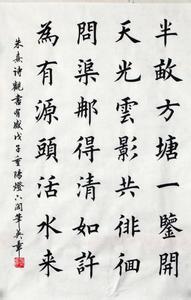 半畝方塘一鑒開
天光雲影共徘徊
問渠那得清如許
為有源頭活水來
朱熹诗觀書有感戊子重陽燈下閑筆英章